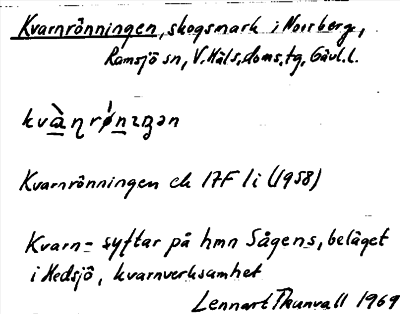 Kvarnrönningen, skogsmark i Norrberg,
Ramsjö sn, V. Häls. doms. tg, Gävl. l.
kvàɳrǿnɪŋən
Kvarnrönningen ek 17F 1i (1958)
Kvarn- syftar på hmn Sågens, beläget
i Hedsjö, kvarnverksamhet
Lennart Thunvall 1969